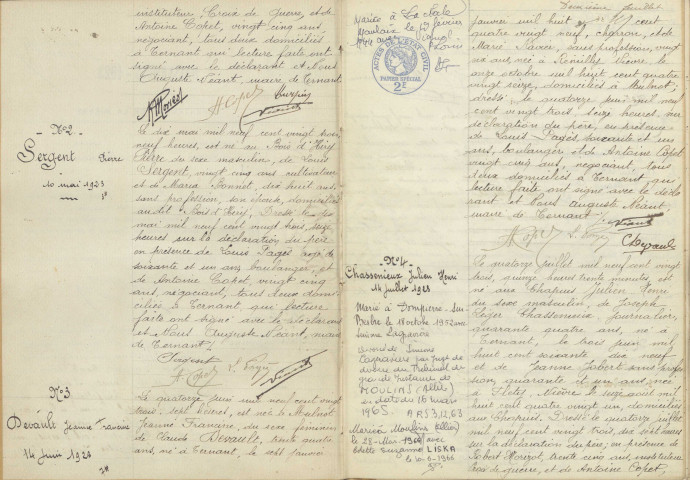 instituteur, Croix de guerre, et de
Antoine Copet, vingt cinq ans
négociant, tous deux domiciliés
à Ternant qui lecture faite ont
signé avec le déclarant et Nous
Auguste Néant, maire de Ternant.
N°2
Sergent Pierre
10 mai 1923
Le dix mai mil neuf cent vingt trois
neuf heures, est né au Bois d'
Pierre du sexe masculin, de Louis
Sergent, vingt cinq ans cultivateur
et de Maria Bonnot, dix huit ans,
sans profession, son épouse, domiciliés
audit Bois d' Dressé le
mai mil neuf cent vingt trois, seize
heures sur la déclaration du père
en présence de Louis Pagès âgé de
soixante et un ans, boulanger, et
de Antoine Copet, vingt cinq
ans, négociant, tous deux domi-
ciliés à Ternant, qui lecture
faite ont signé avec le déclarant
et Nous Auguste Néant, maire
de Ternant.
Sergent
N°3
Devault Jeanne Francine
14 juin 1923
Le quatorze juin mil neuf cent vingt
trois, heures, est née à Mulnot
Jeanne Francine, du sexe féminin
de Claude Devault, trente quatre
ans, né à Ternant, le sept janvier
Deuxième feuillet
Mariée à La Nocle
Maulaix le février
1944 avec
Louis
ACTES DE L'ETAT CIVIL
PAPIER SPECIAL
2F
janvier mil huit cent
quatre vingt neuf, charron, et de
Maria sans profession, vingt
six ans, née à Rémilly Nièvre, le
onze octobre mil huit cent quatre
vingt seize, domiciliés à Mulnot;
dressé, le quatorze juin mil neuf
cent vingt trois seize heures, sur
déclaration du père, en présence
de Louis Pagès soixante et un
ans, boulanger et de Antoine Copet
vingt cinq ans, négociant, tous
deux domiciliés à Ternant, qui
lecture faite ont signé avec le décla-
rant et Nous Auguste Néant,
maire de Ternant.
N°4
Chassenieux Julien Henri
14 juillet 1923
Marié à Dompierre-sur-
Besbre le 18 octobre 1952 avec
Simone
Divorcé de Simone
par jugt de
divorce du Tribunal de
grande Instance de
MOULINS (Allier)
en date du 16 mars
1965.
Marié à Moulins (Allier)
le 28-Mai-1966 avec
Odette Suzanne LISKA
le 6-1966
Le quatorze juillet mil neuf cent vingt
trois, quinze heures trente minutes est
né aux Chapuis Julien Henri
du sexe masculin, de Joseph
Chassenieux journalier,
quarante quatre ans, né à
Ternant, le trois juin mil
huit cent soixante dix neuf
et de Jeanne Jobert sans profes-
sion, quarante et un ans, née
à Fléty, Nièvre le seize août mil
huit cent quatre vingt un, domiciliés
aux Chapuis. Dressé le quatorze juillet
mil neuf cent vingt trois, dix sept heures
sur la déclaration du père, en présence de
Robert trente cinq ans, instituteur
Croix de guerre, et de Antoine Copet,